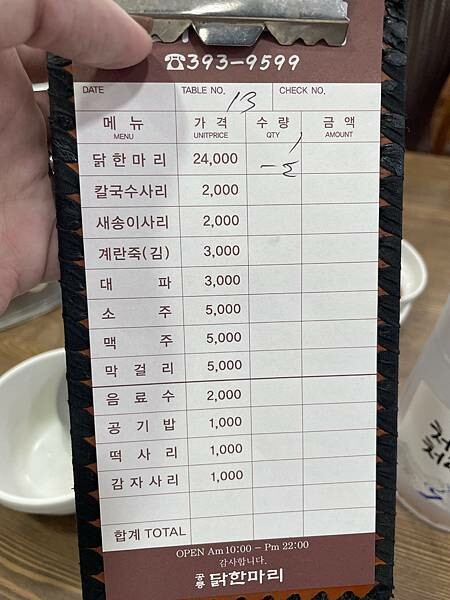 ☎393-9599
DATE TABLE NO. 13 CHECK NO.
메 뉴 가 격 수 량 금 액
MENU UNITPRICE QTY AMOUNT
닭 한 마 리 24,000
칼국수사리 2,000
새송이사리 2,000
계란죽(김) 3,000
대 파 3,000
소 주 5,000
맥 주 5,000
막 걸 리 5,000
음 료 수 2,000
공 기 밥 1,000
떡 사 리 1,000
감자사리 1,000
합계 TOTAL
OPEN Am 10:00 - Pm 22:00
감사합니다.
공릉 닭한마리